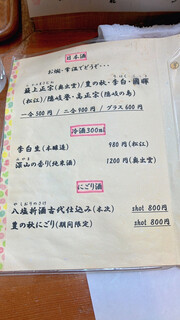 日本酒
お燗・常温でどうぞ・・・
簸上正宗(奥出雲)/豊の秋・李白・國暉
(松江)/隠岐誉・高正宗(隠岐の島)
一合 500円/二合 900円/グラス 600円
冷酒300ml
李白生(本醸造) 980円(松江)
深山の香り(純米酒) 1200円(奥出雲)
にごり酒
やしおりのさけ
八塩折酒古代仕込み(木次) shot 800円
豊の秋にごり(期間限定) shot 800円